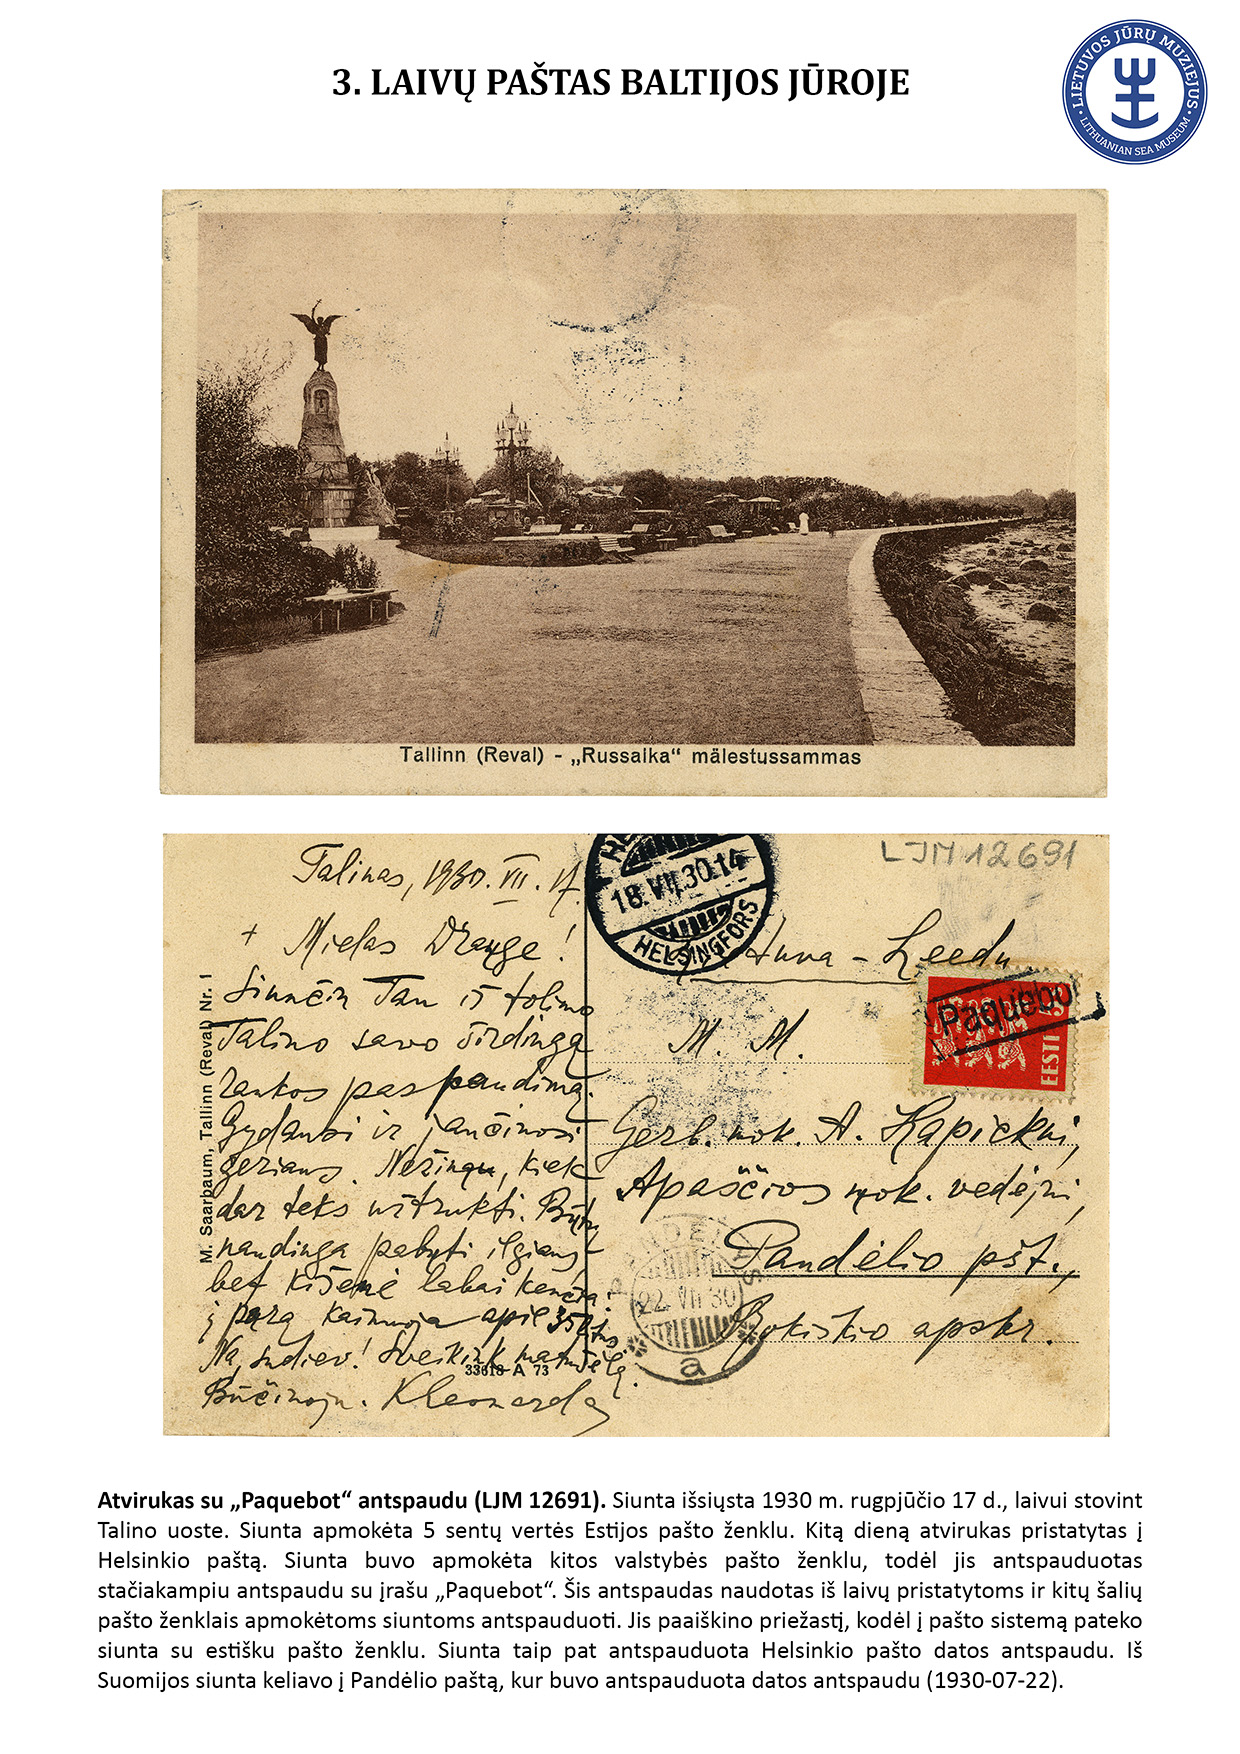 3. LAIVŲ PAŠTAS BALTIJOS JŪROJE
LIETUVOS JŪRŲ MUZIEJUS
LITHUANIAN SEA MUSEUM
Tallinn (Reval) - „Russalka“ mälestussammas
LJM 12691
Talinas, 1930. VII. 17.
+ Mielas Drauge!
Siunčiu Tau iš tolimo
Talino savo širdingą
rankos paspaudimą.
Gydausi ir jaučiuosi
geriaus. Nežinau, kiek
dar teks užtrukti. Būtų
naudinga pabūti ilgiaus
bet kišenė labai kenčia:
į parą kainuoja apie 35
Na, sudiev! Sveikink mamelę.
Bučiuoju. Kleonarda
M. Saarbaum, Tallinn (Reval) Nr. 1
33618 A 73
18.VII.30.14
HELSINGFORS
Leedu
Paquebot
EESTI
M. M.
Gerb. mok. A. Lapickui,
Apaščios mok. vedėjui,
Pandėlio pšt.,
Rokiškio apskr.
PANDĖLYS
22.VII 30
a
Atvirukas su „Paquebot“ antspaudu (LJM 12691). Siunta išsiųsta 1930 m. rugpjūčio 17 d., laivui stovint
Talino uoste. Siunta apmokėta 5 sentų vertės Estijos pašto ženklu. Kitą dieną atvirukas pristatytas į
Helsinkio paštą. Siunta buvo apmokėta kitos valstybės pašto ženklu, todėl jis antspauduotas
stačiakampiu antspaudu su įrašu „Paquebot“. Šis antspaudas naudotas iš laivų pristatytoms ir kitų šalių
pašto ženklais apmokėtoms siuntoms antspauduoti. Jis paaiškino priežastį, kodėl į pašto sistemą pateko
siunta su estišku pašto ženklu. Siunta taip pat antspauduota Helsinkio pašto datos antspaudu. Iš
Suomijos siunta keliavo į Pandėlio paštą, kur buvo antspauduota datos antspaudu (1930-07-22).